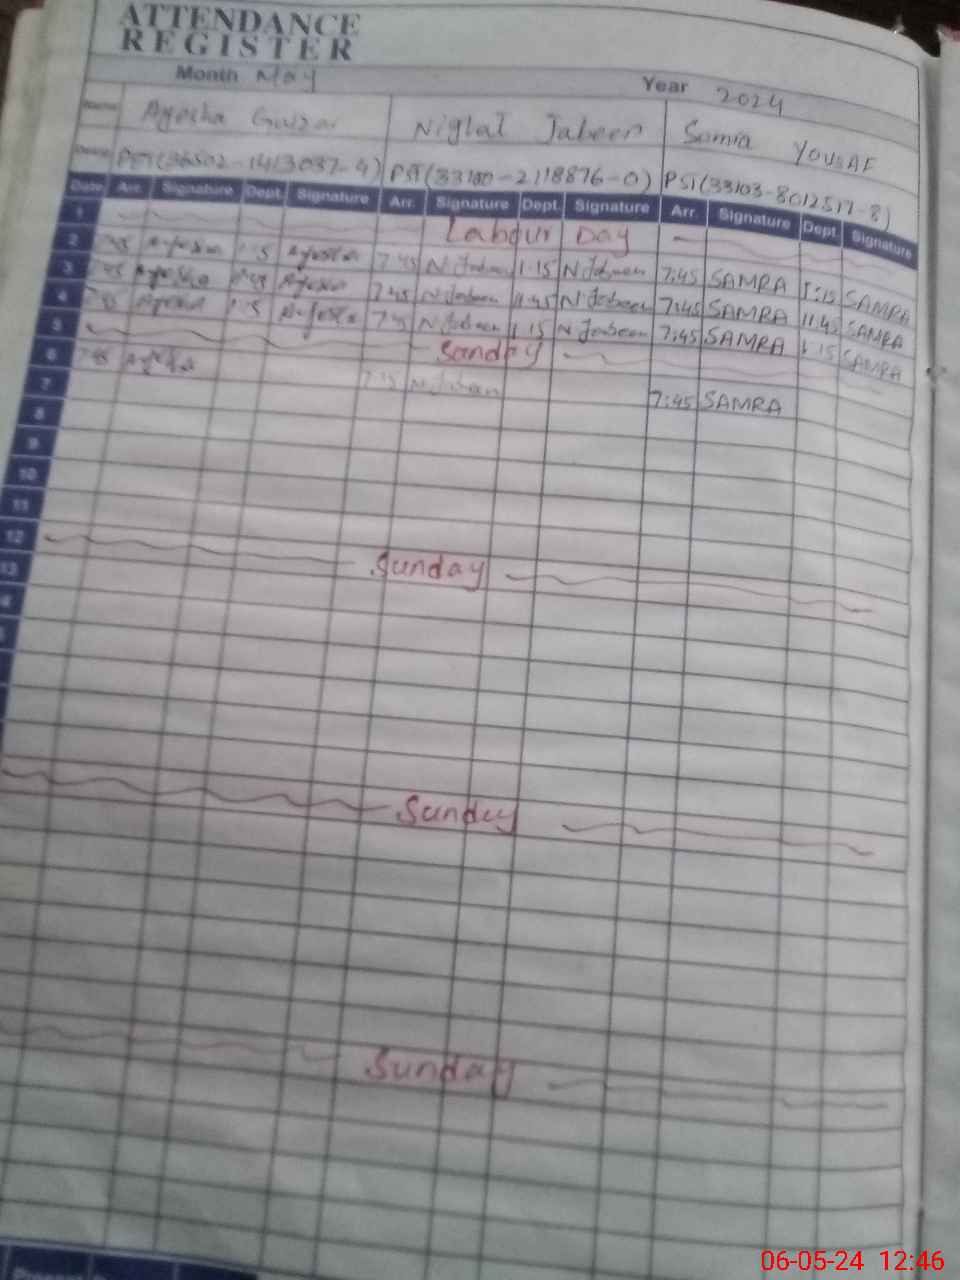 ATTENDANCE
REGISTER
Month May Year 2024
Name Ayesha Gulzar Niglat Jabeen Samra YOUSAF
PST(36502-1413037-4) PST(33100-2118876-0) PST(33103-8012517-8)
Date Arr. Signature Dept. Signature Arr. Signature Dept. Signature Arr. Signature Dept. Signature
1 Labour Day
2 7:45 Ayesha 1:15 Ayesha 7:45 N Jabeen 1:15 N Jabeen 7:45 SAMRA 1:15 SAMRA
3 7:45 Ayesha 11:45 Ayesha 7:45 N Jabeen 11:45 N Jabeen 7:45 SAMRA 11:45 SAMRA
4 7:45 Ayesha 1:15 Ayesha 7:45 N Jabeen 1:15 N Jabeen 7:45 SAMRA 1:15 SAMRA
5 Sunday
6 7:45 Ayesha 7:45 N Jabeen 7:45 SAMRA
7
8
9
10
11
12 Sunday
13
4
Sunday
Sunday
06-05-24 12:46